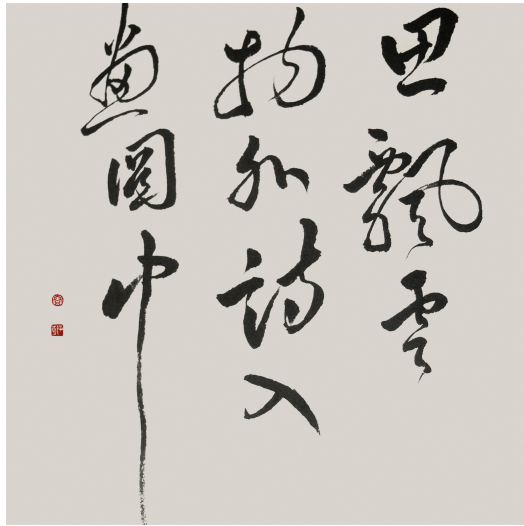 思飘云
物外诗入
画图中